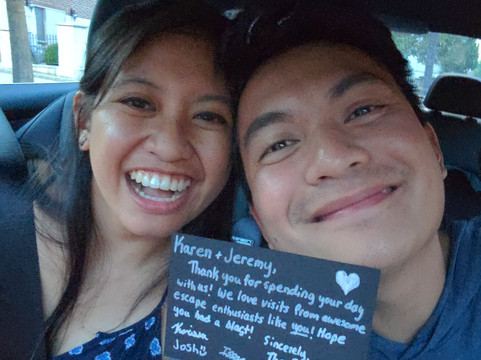 Karen + Jeremy,
Thank you for spending your day
with us! We love visits from awesome
escape enthusiasts like you! Hope
you had a blast!
Sincerely,
Josh